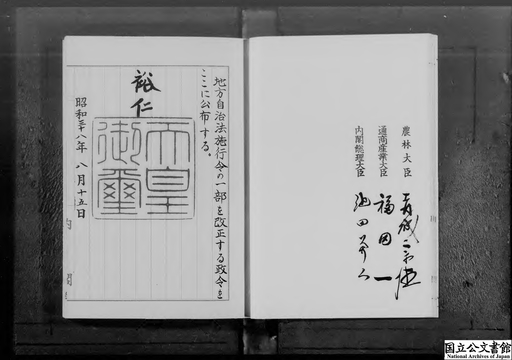 農林大臣 赤城宗徳
通商産業大臣 福田一
内閣総理大臣 池田勇人
地方自治法施行令の一部を改正する政令を
ここに公布する。
裕仁
天皇御璽
昭和三十八年八月十五日
内閣
国立公文書館
National Archives of Japan